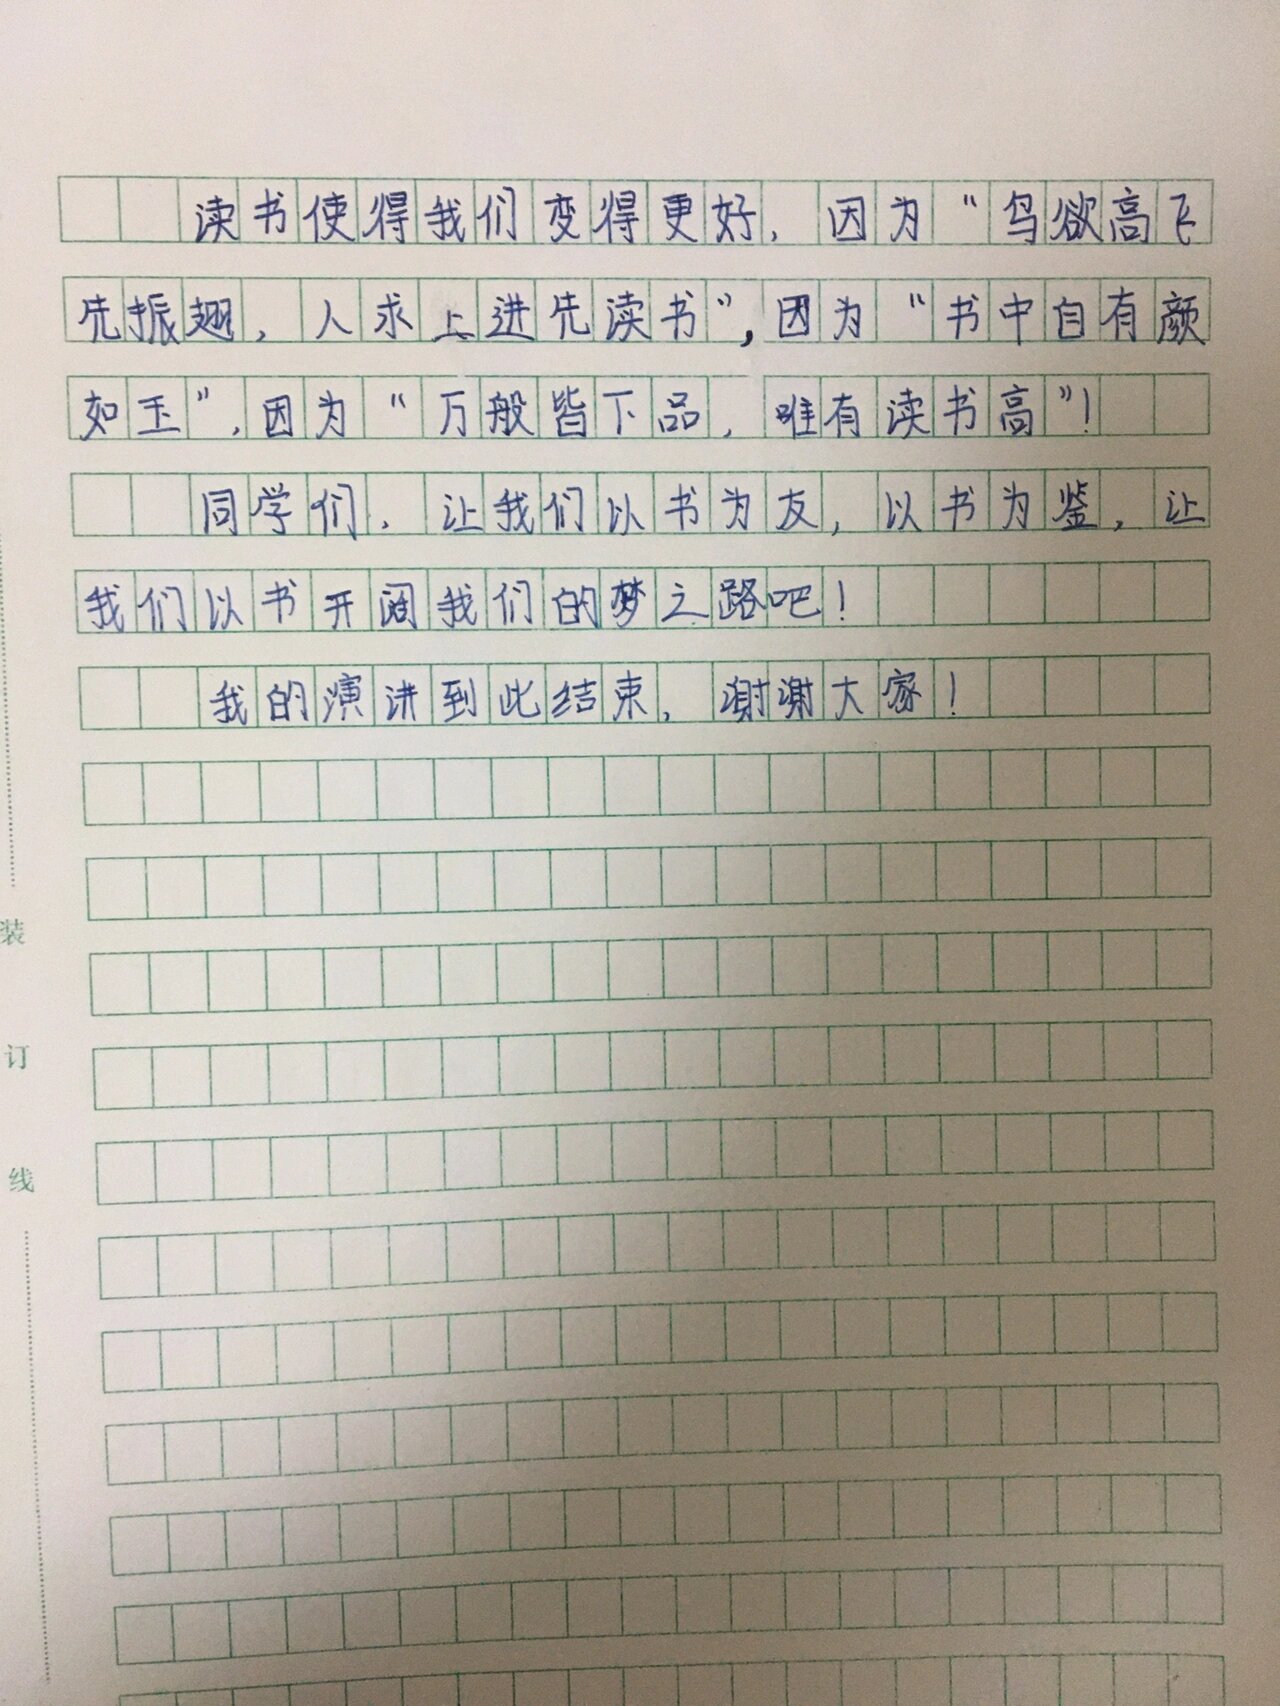 读书使得我们变得更好，因为“鸟欲高飞
先振翅，人求上进先读书”，因为“书中自有颜
如玉”，因为“万般皆下品，唯有读书高”！
同学们，让我们以书为友，以书为鉴，让
我们以书开阔我们的梦之路吧！
我的演讲到此结束，谢谢大家！
装
订
线